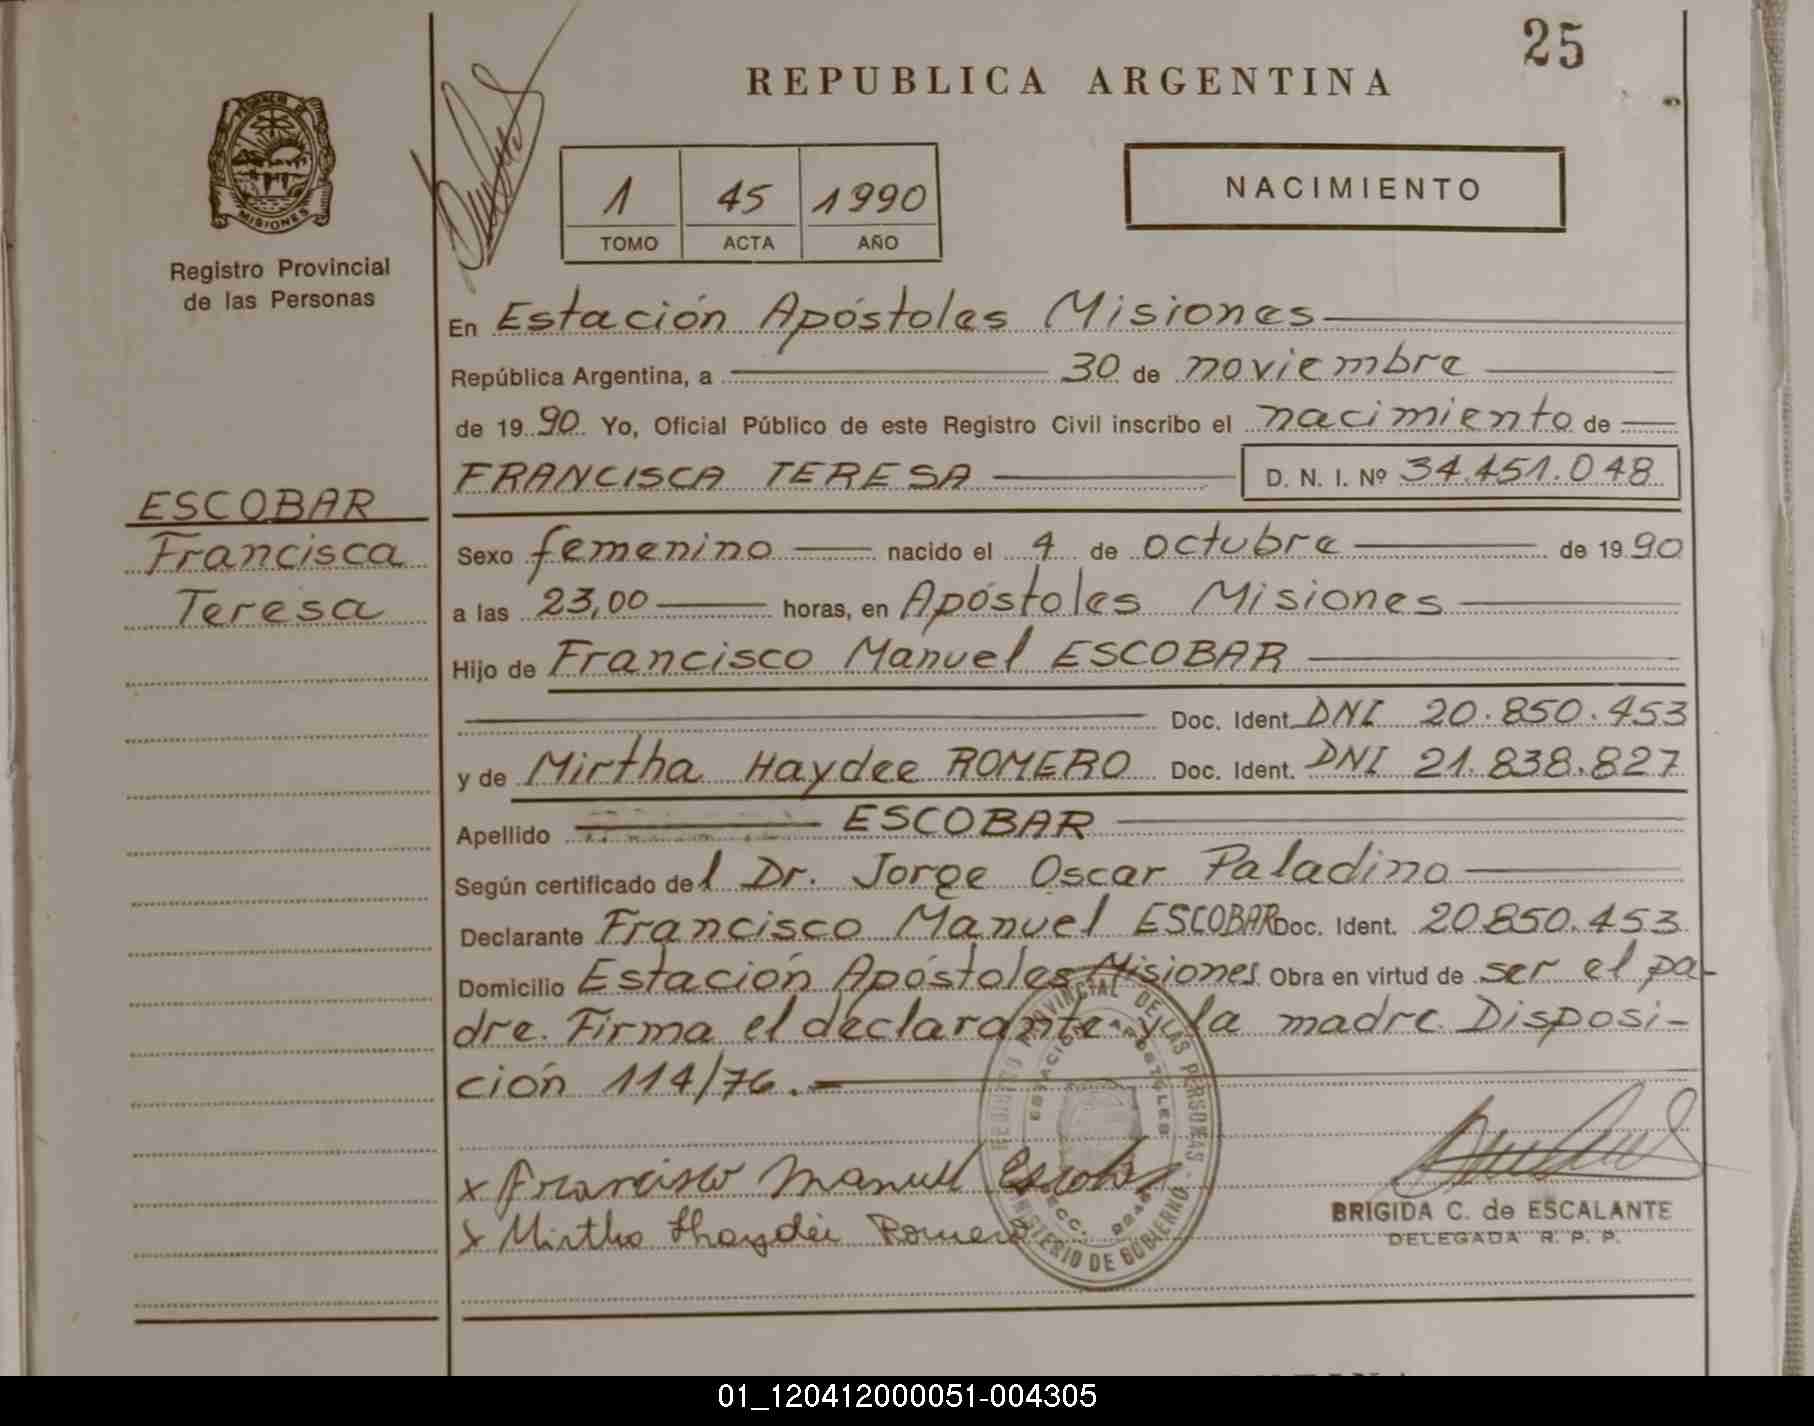 25
REPUBLICA ARGENTINA
PROVINCIA DE
MISIONES
Registro Provincial
de las Personas
1 45 1990
TOMO ACTA AÑO
NACIMIENTO
En Estación Apóstoles Misiones
República Argentina, a 30 de noviembre
de 1990. Yo, Oficial Público de este Registro Civil inscribo el nacimiento de
FRANCISCA TERESA D. N. I. Nº 34.451.048
ESCOBAR
Francisca
Teresa
Sexo femenino nacido el 4 de octubre de 1990
a las 23,00 horas, en Apóstoles Misiones
Hijo de Francisco Manuel ESCOBAR
Doc. Ident. DNI 20.850.453
y de Mirtha Haydee ROMERO Doc. Ident. DNI 21.838.827
Apellido ESCOBAR
Según certificado del Dr. Jorge Oscar Paladino
Declarante Francisco Manuel ESCOBAR Doc. Ident. 20850.453
Domicilio Estación Apóstoles Misiones Obra en virtud de ser el pa-
dre. Firma el declarante y la madre. Disposi-
ción 114/76.-
REGISTRO PROVINCIAL DE LAS PERSONAS
ESTACION APOSTOLES
MINISTERIO DE GOBIERNO
x Francisco Manuel Escobar
x Mirtha Haydee Romero
BRIGIDA C. de ESCALANTE
DELEGADA R. P. P.
01_120412000051-004305